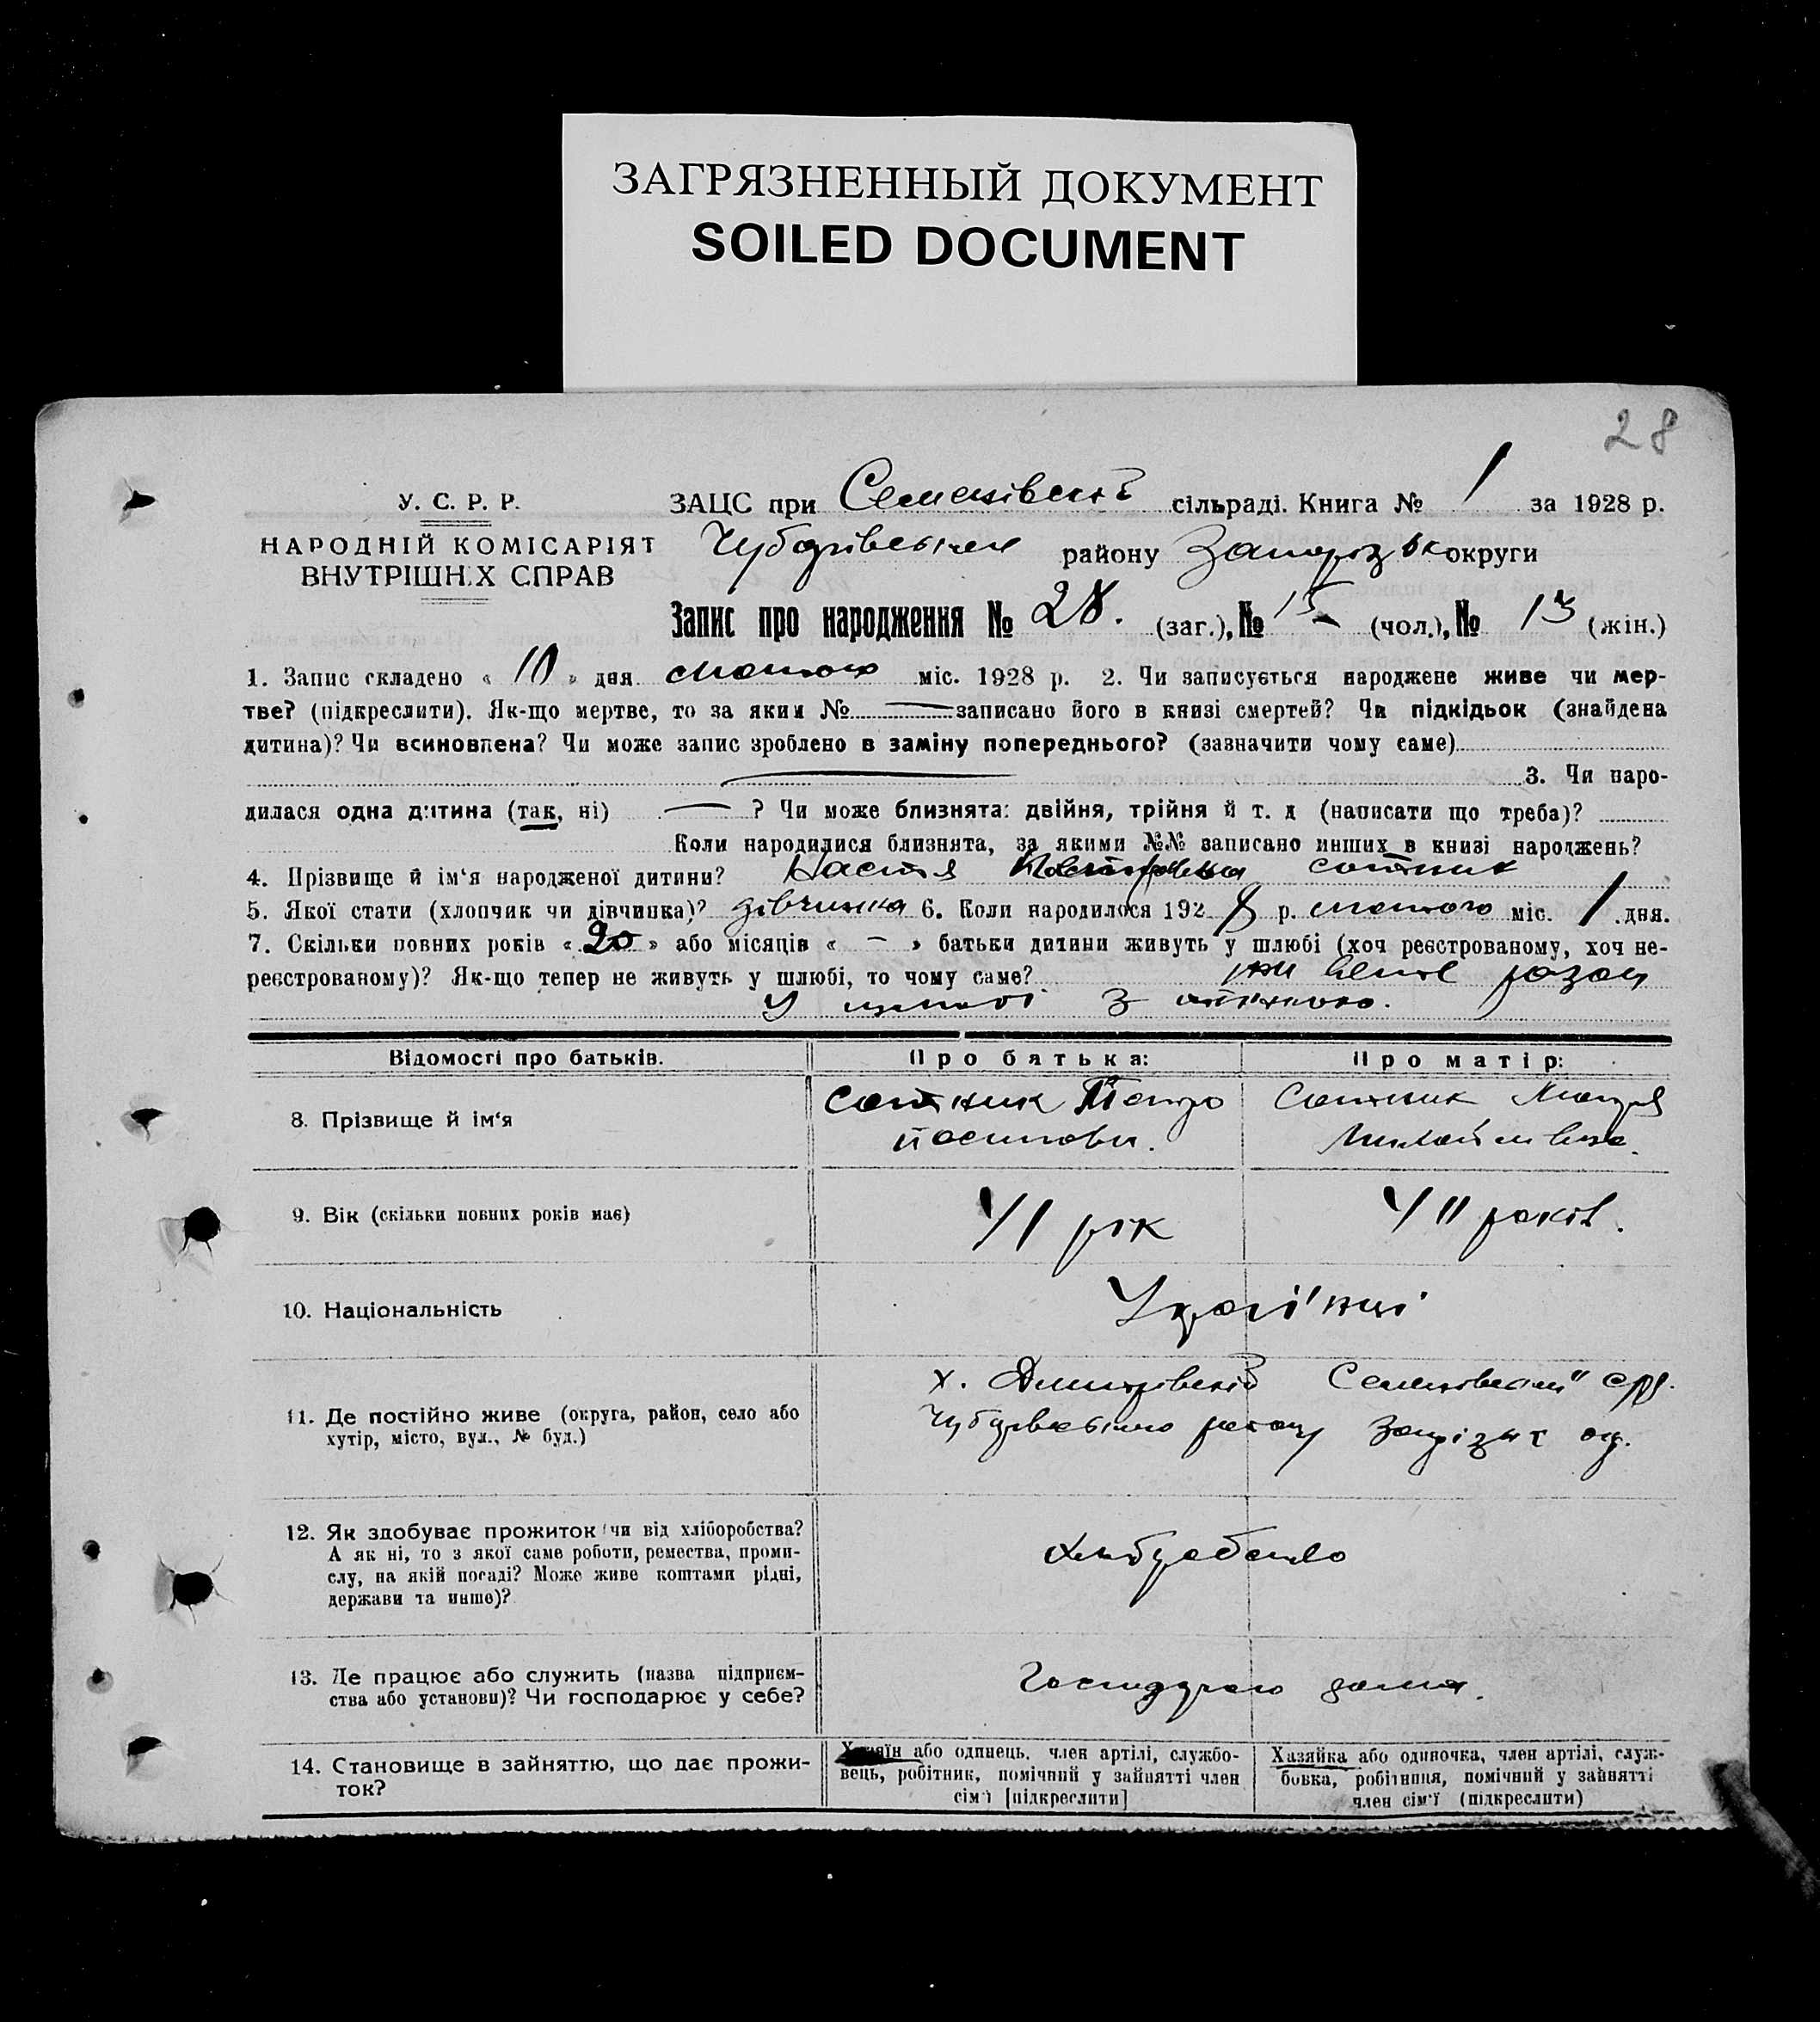 ЗАГРЯЗНЕННЫЙ ДОКУМЕНТ
SOILED DOCUMENT
28
У. С. Р. Р.
НАРОДНІЙ КОМІСАРІЯТ
ВНУТРІШНІХ СПРАВ
ЗАЦС при сільраді. Книга № 1 за 1928 р.
району округи
Запис про народження № 28. (заг.), № 15 (чол.), № 13 (жін.)
1. Запис складено « 10 » дня лютого міс. 1928 р. 2. Чи записується народжене живе чи мер-
тве? (підкреслити). Як-що мертве, то за яким № — записано його в книзі смертей? Чи підкідьок (знайдена
дитина)? Чи всиновлена? Чи може запис зроблено в заміну попереднього? (зазначити чому саме)
3. Чи наро-
дилася одна дитина (так, ні) — ? Чи може близнята: двійня, трійня й т. д (написати що треба)?
Коли народилися близнята, за якими №№ записано инших в книзі народжень?
4. Прізвище й ім‘я народженої дитини? Настя Петровна сотник
5. Якої стати (хлопчик чи дівчинка)? дівчинка 6. Коли народилося 192 8 р. лютого міс. 1 дня.
7. Скільки повних років « 20 » або місяців « – » батьки дитини живуть у шлюбі (хоч реєстрованому, хоч не-
реєстрованому)? Як-що тепер не живуть у шлюбі, то чому саме? разом
у шлюбі з
Відомості про батьків.
Про батька:
Про матір:
8. Прізвище й ім‘я
Сотник Петро
Сотник Мотря
9. Вік (скільки повних років має)
41 рік
років.
10. Національність
Українці
11. Де постійно живе (округа, район, село або
хутір, місто, вул., № буд.)
х.
12. Як здобуває прожиток чи від хліборобства?
А як ні, то з якої саме роботи, ремества, проми-
слу, на якій посаді? Може живе коштами рідні,
держави та инше)?
хліборобство
13. Де працює або служить (назва підприєм-
ства або установи)? Чи господарює у себе?
дома.
14. Становище в зайняттю, що дає прожи-
ток?
Хазяїн або одинець, член артілі, службо-
вець, робітник, помічний у зайнятті член
сім‘ї [підкреслити]
Хазяйка або одиночка, член артілі, служ-
бовка, робітниця, помічний у зайнятті
член сім‘ї (підкреслити)